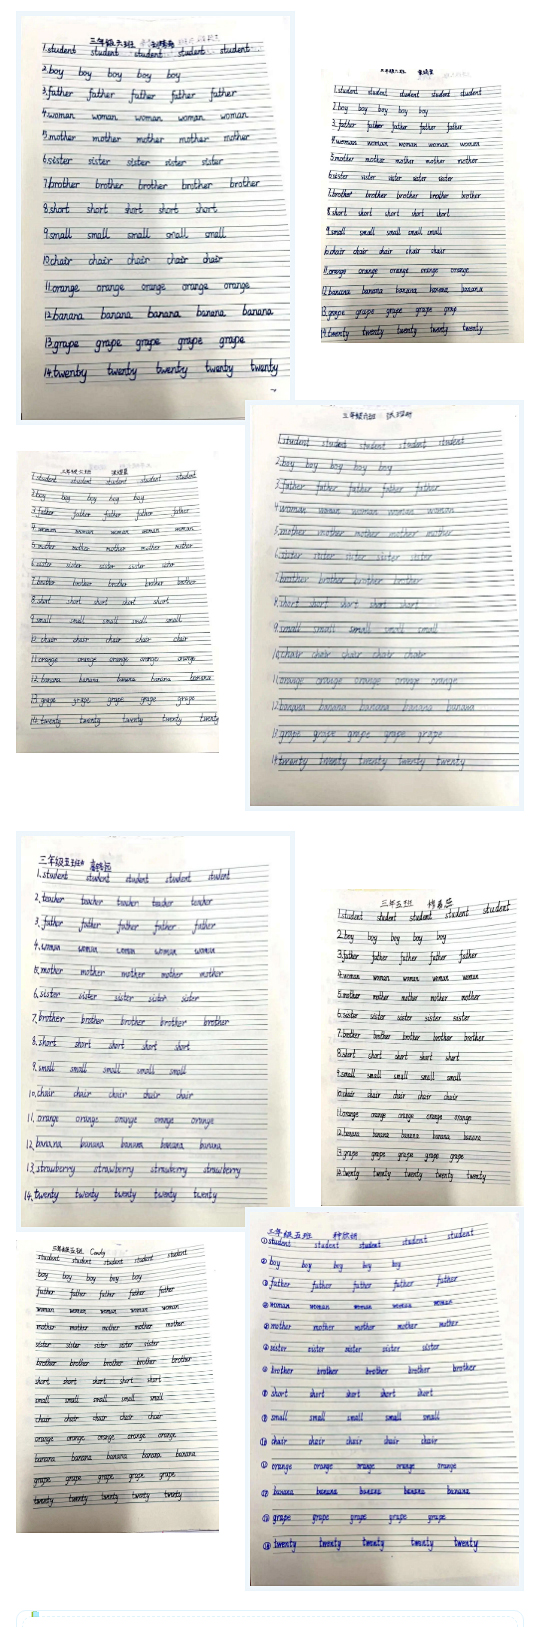 三年级六班
1.student student student student student
2.boy boy boy boy boy
3.father father father father father
4.woman woman woman woman woman
5.mother mother mother mother mother
6.sister sister sister sister sister
7.brother brother brother brother brother
8.short short short short short
9.small small small small small
10.chair chair chair chair chair
11.orange orange orange orange orange
12.banana banana banana banana banana
13.grape grape grape grape grape
14.twenty twenty twenty twenty twenty
三年级六班
1.student student student student student
2.boy boy boy boy boy
3.father father father father father
4.woman woman woman woman woman
5.mother mother mother mother mother
6.sister sister sister sister sister
7.brother brother brother brother brother
8.short short short short short
9.small small small small small
10.chair chair chair chair chair
11.orange orange orange orange orange
12.banana banana banana banana banana
13.grape grape grape grape grap
14.twenty twenty twenty twenty twenty
三年级六班
1.student student student student student
2.boy boy boy boy boy
3.father father father father father
4.woman woman woman woman woman
5.mother mother mother mother mother
6.sister sister sister sister sister
7.brother brother brother brother brother
8.short short short short short
9.small small small small small
10.chair chair chair chair chair
11.orange orange orange orange orange
12.banana banana banana banana banana
13.grape grape grape grape grape
14.twenty twenty twenty twenty twenty
三年级六班
1.student student student student student
2.boy boy boy boy boy
3.father father father father father
4.woman woman woman woman woman
5.mother mother mother mother mother
6.sister sister sister sister sister
7.brother brother brother brother
8.short short short short short
9.small small small small small
10.chair chair chair chair chair
11.orange orange orange orange orange
12.banana banana banana banana banana
13.grape grape grape grape grape
14.twenty twenty twenty twenty twenty
三年级五班
1.student student student student student
2.teacher teacher teacher teacher teacher
3.father father father father father
4.woman woman woman woman woman
5.mother mother mother mother mother
6.sister sister sister sister sister
7.brother brother brother brother brother
8.short short short short short
9.small small small small small
10.chair chair chair chair chair
11.orange orange orange orange orange
12.banana banana banana banana banana
13.strawberry strawberry strawberry strawberry
14.twenty twenty twenty twenty twenty
三年五班
1.student student student student student
2.boy boy boy boy boy
3.father father father father father
4.woman woman woman woman woman
5.mother mother mother mother mother
6.sister sister sister sister sister
7.brother brother brother brother brother
8.short short short short short
9.small small small small small
10.chair chair chair chair chair
11.orange orange orange orange orange
12.banana banana banana banana banana
13.grape grape grape grape grape
14.twenty twenty twenty twenty twenty
三年级五班 Candy
student student student student student
boy boy boy boy boy
father father father father father
woman woman woman woman woman
mother mother mother mother mother
sister sister sister sister sister
brother brother brother brother brother
short short short short short
small small small small small
chair chair chair chair chair
orange orange orange orange orange
banana banana banana banana banana
grape grape grape grape grape
twenty twenty twenty twenty twenty
三年级五班
①student student student student student
②boy boy boy boy boy
③father father father father father
④woman woman woman woman woman
⑤mother mother mother mother mother
⑥sister sister sister sister sister
⑦brother brother brother brother brother
⑧short short short short short
⑨small small small small small
⑩chair chair chair chair chair
⑪orange orange orange orange orange
⑫banana banana banana banana banana
⑬grape grape grape grape grape
⑭twenty twenty twenty twenty twenty